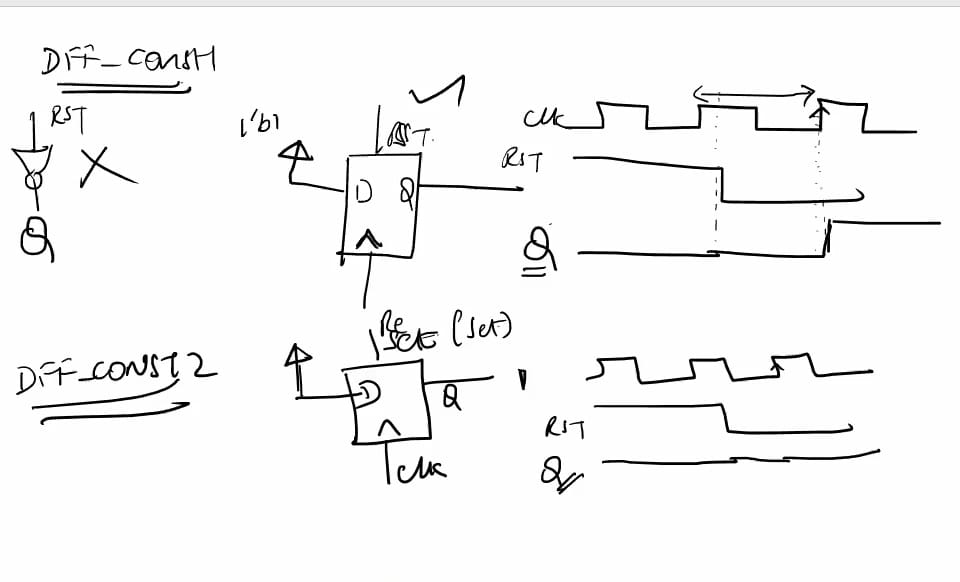 DFF_CONST1
RST
Q
1'b1
RST
D Q
CLK
RST
Q
DFF_CONST2
Reset (set)
D
Q
CLK
RST
Q